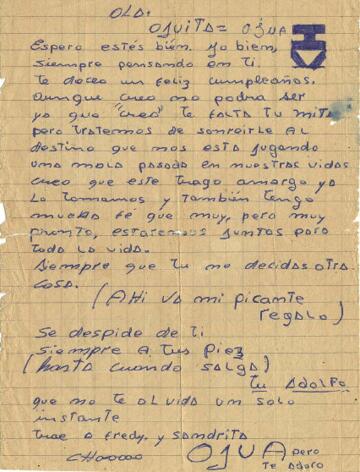 OLA.
OJUITA = OJUA
Espero estés bién. yo bien,
siempre pensando en ti.
te deceo un feliz cumpleaños.
aunque creo no podra ser
ya que "creo" te falta tu mita
pero tratemos de sonreirle al
destino que nos esta jugando
una mala pasada en nuestras vidas
creo que este trago amargo ya
lo tomamos y también tengo
mucha fé que muy, pero muy
pronto, estaremos juntos para
toda la vida.
siempre que tu no decidas otra
cosa.
(AHI VA mi picante
regalo)
Se despide de ti
siempre A tus piez
(hasta cuando salga)
tu Adolfo
que no te olvida un solo
instante
trae a Fredy. y sandrita
chaoooo OJUA pero
te adoro